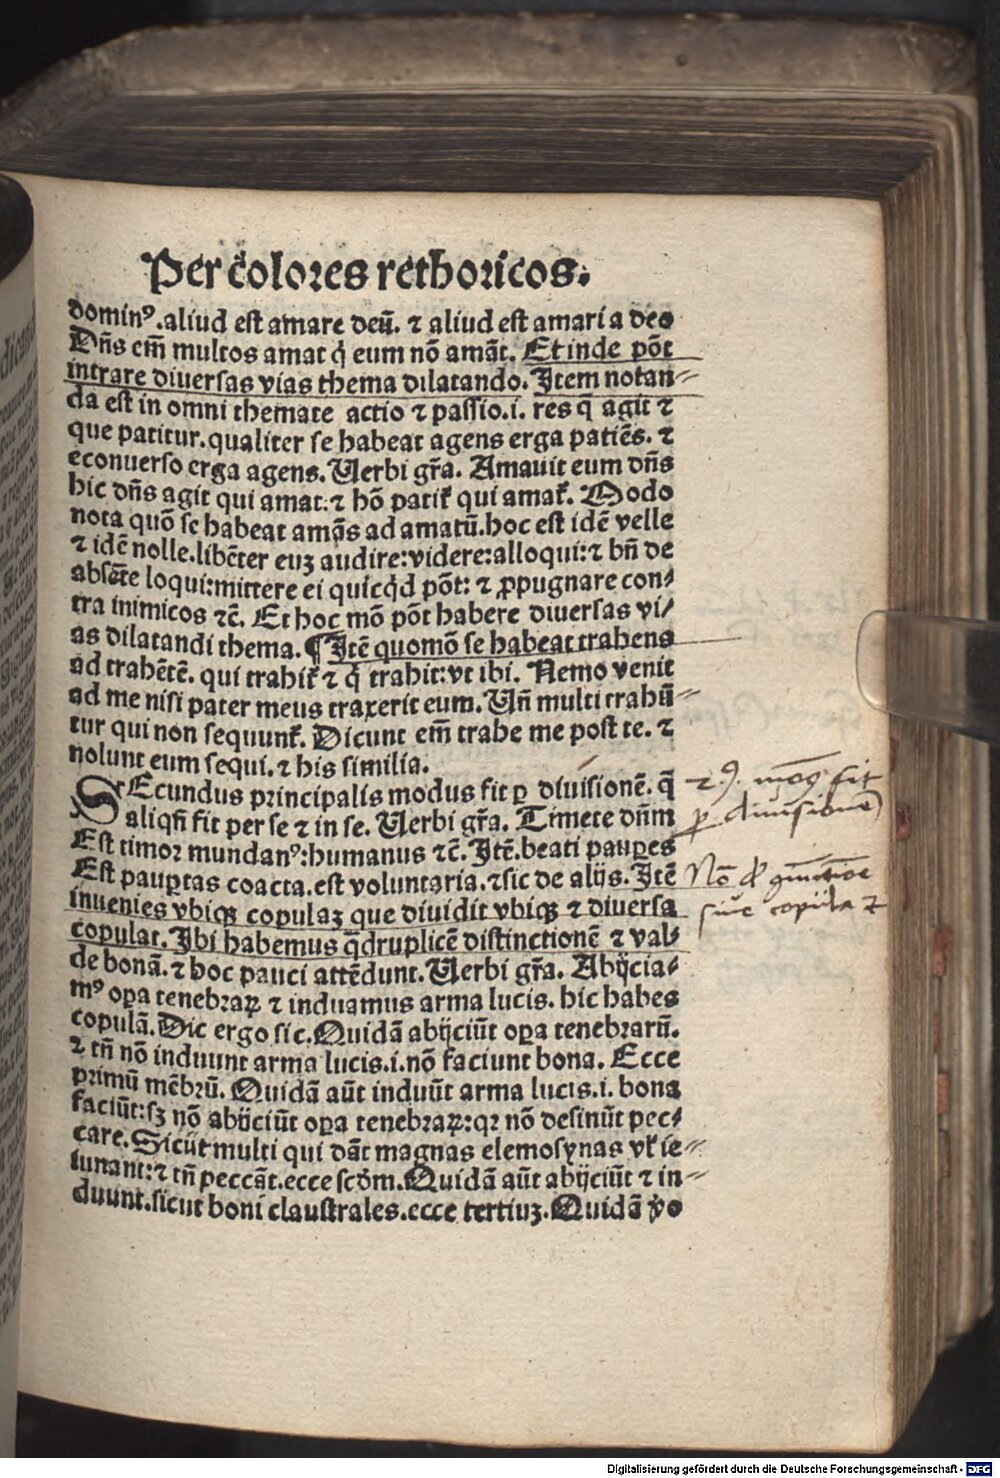 Per colores rethoricos.
dominꝰ.aliud est amare deū. ⁊ aliud est amari a deo
Dñs em̄ multos amat q̇ eum nō amāt. Et inde pōt
intrare diuersas vias thema dilatando. Item notan⸗
da est in omni themate actio ⁊ passio.i. res q̄ agit ⁊
que patitur.qualiter se habeat agens erga patiēs. ⁊
econuerso erga agens. Uerbi gr̄a. Amauit eum dñs
hic dñs agit qui amat:⁊ hō patit̄ qui amat̄. Modo
nota quō se habeat amās ad amatū.hoc est idē velle
⁊ idē nolle.libēter euꝫ audire:videre:alloqui:⁊ bñ de
absēte loqui:mittere ei quicq̇d pōt: ⁊ ꝓpugnare con⸗
tra inimicos ⁊c̄. Et hoc mō pōt habere diuersas vi⸗
as dilatandi thema. ¶Itē quomō se habeat trahens
ad trahētē. qui trahit̄ ⁊ q̇ trahit:vt ibi. Nemo venit
ad me nisi pater meus traxerit eum. Uñ multi trahū⸗
tur qui non sequunt̄. Dicunt em̄ trahe me post te. ⁊
nolunt eum sequi. ⁊ his similia.
SEcundus principalis modus fit ꝑ diuisionē. q̄
aliqñ fit per se ⁊ in se. Uerbi gr̄a. Timete dñm
Est timor mundanꝰ:humanus ⁊c̄. Itē.beati pauꝑes
Est pauꝑtas coacta.est voluntaria.⁊sic de alijs. Itē
inuenies vbiqꝫ copulaꝫ que diuidit vbiqꝫ ⁊ diuersa
copulat. Ibi habemus q̄druplicē distinctionē ⁊ val⸗
de bonā.⁊ hoc pauci attēdunt. Uerbi gr̄a. Abijcia⸗
mꝰ oꝑa tenebraꝝ ⁊ induamus arma lucis. hic habes
copulā. Dic ergo sic. Quidā abijciūt oꝑa tenebrarū.
⁊ tñ nō induunt arma lucis.i.nō faciunt bona. Ecce
primū mēbrū. Quidā aūt induūt arma lucis.i. bona
faciūt:sꝫ nō abijciūt oꝑa tenebraꝝ:qꝛ nō desinūt pec⸗
care. Sicūt multi qui dāt magnas elemosynas vl̄ ie⸗
iunant:⁊ tñ peccāt.ecce scd̄m. Quidā aūt abijciūt ⁊ in⸗
duunt.sicut boni claustrales.ecce tertiuꝫ. Quidā v̇o
⁊ 9. modꝰ fit
ꝑ diuisionē
Nō
siue copula ⁊
Digitalisierung gefördert durch die Deutsche Forschungsgemeinschaft - DFG